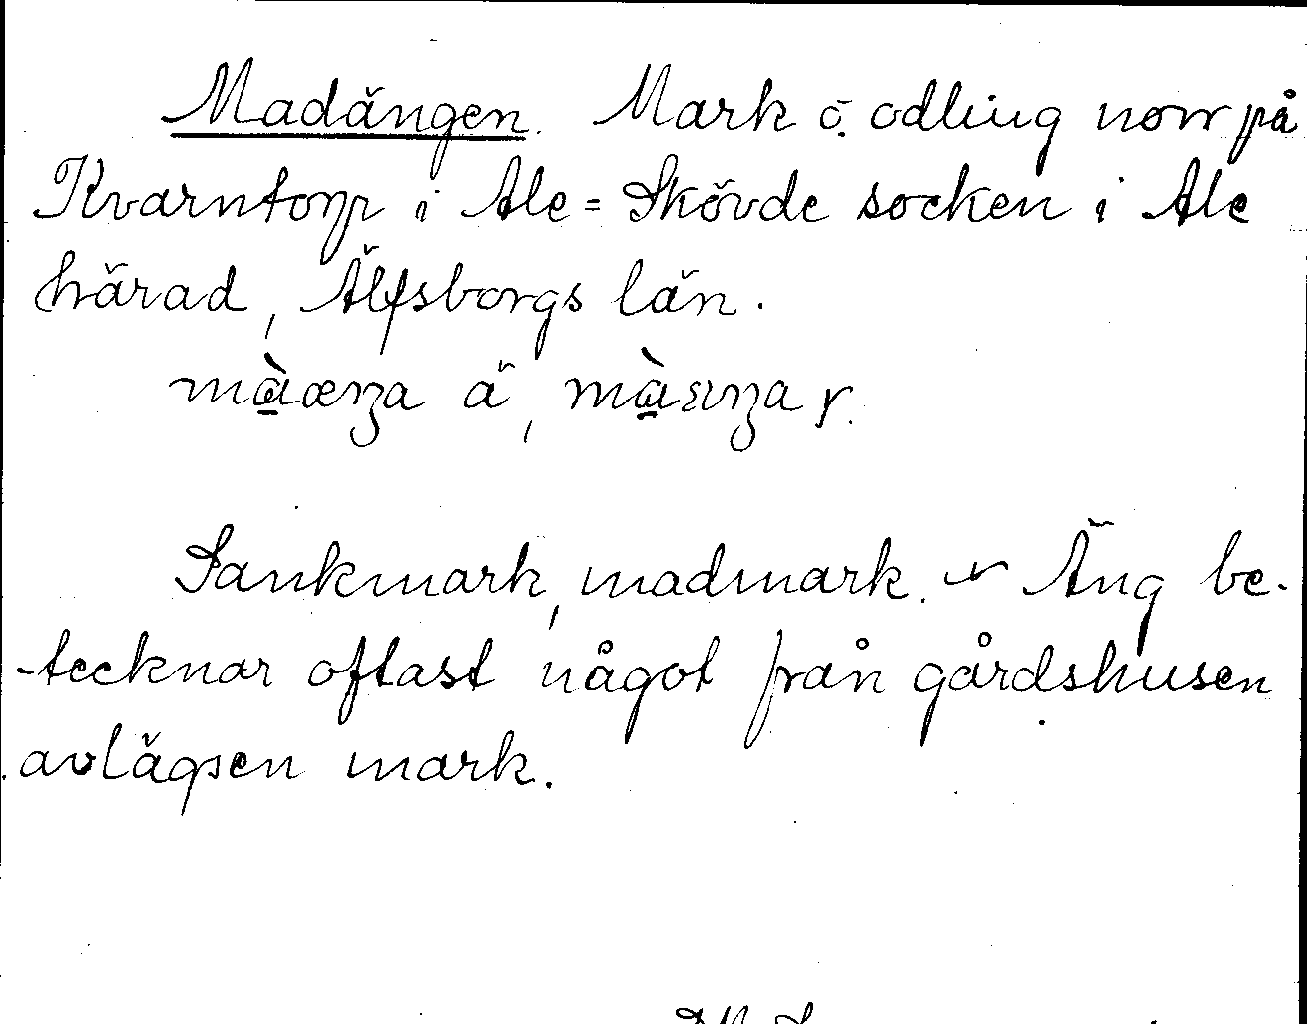 Madängen. Mark o. odling norr på
Kvarntorp i Ale=Skövde socken i Ale
härad, Älfsborgs län.
ä,
Sankmark, madmark. Äng be-
tecknar oftast något från gårdshusen
avlägsen mark.